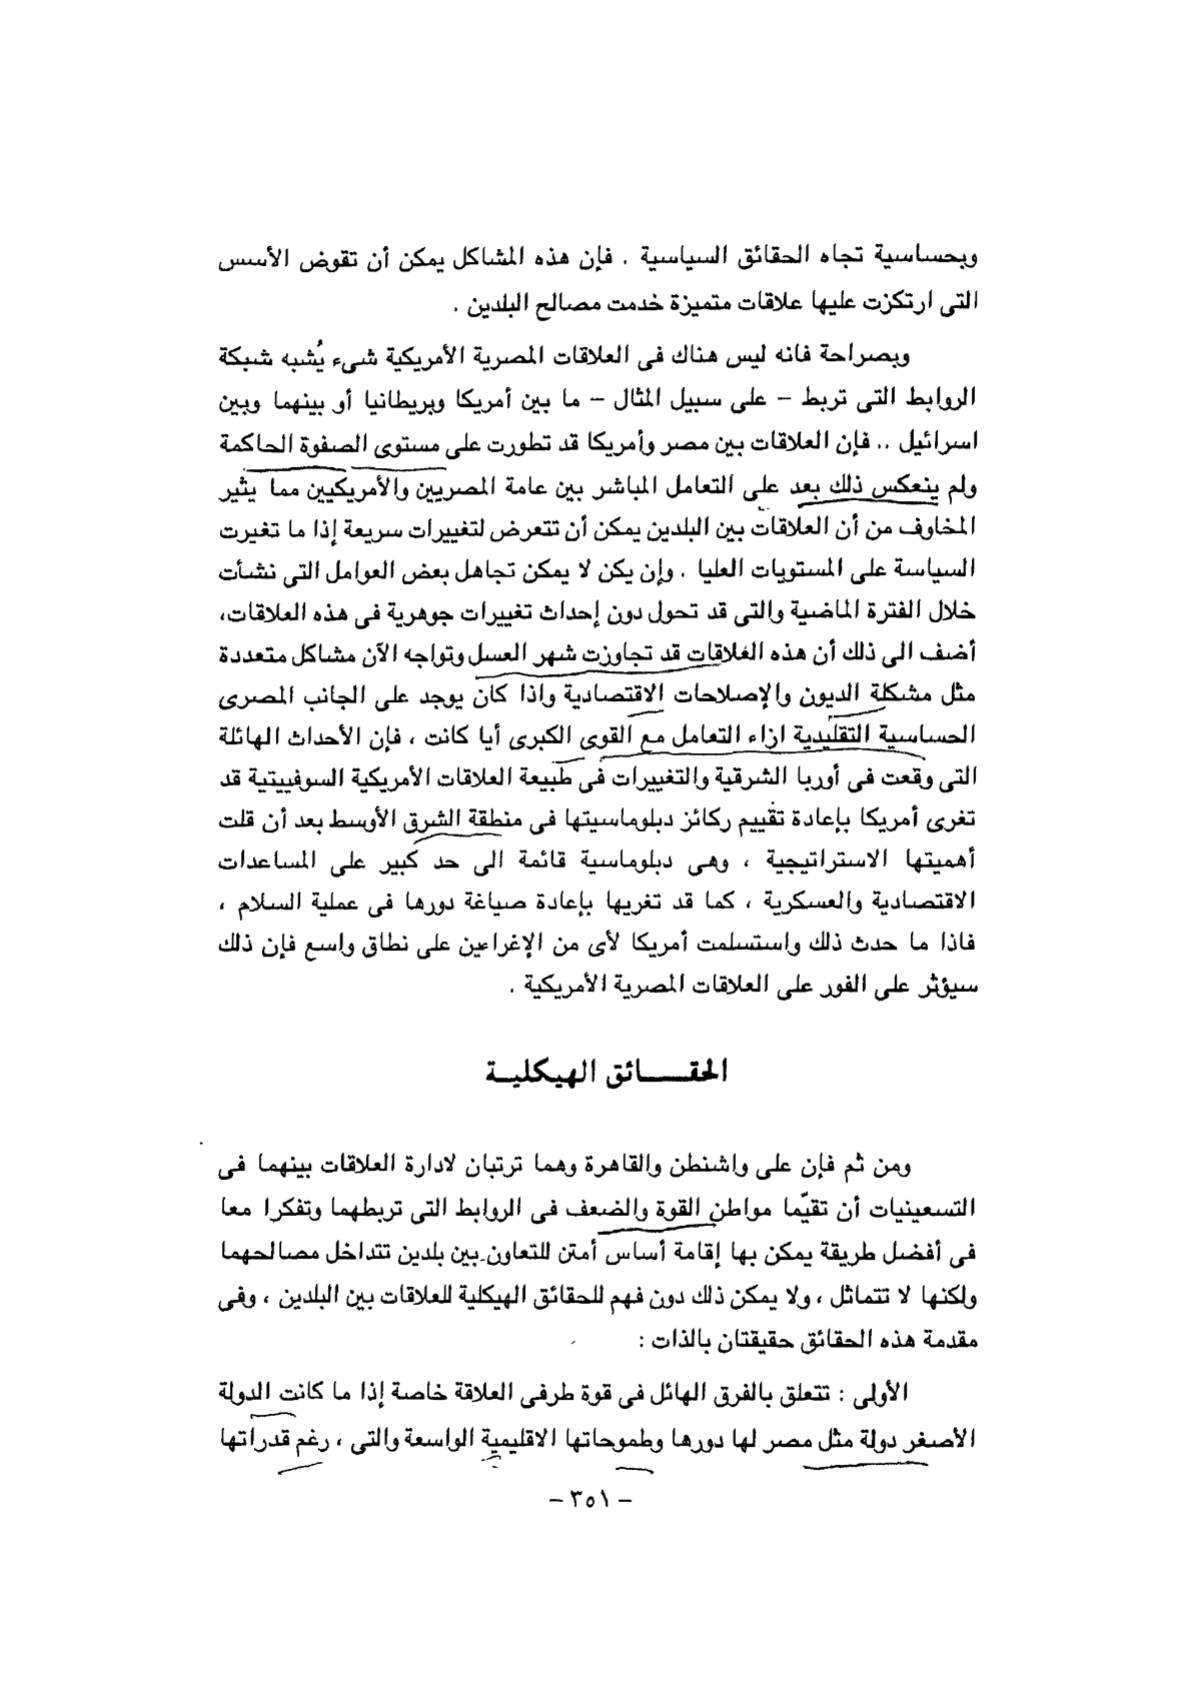 وبحساسية تجاه الحقائق السياسية . فإن هذه المشاكل يمكن أن تقوض الأسس
التى ارتكزت عليها علاقات متميزة خدمت مصالح البلدين .
وبصراحة فانه ليس هناك فى العلاقات المصرية الأمريكية شىء يُشبه شبكة
الروابط التى تربط – على سبيل المثال – ما بين أمريكا وبريطانيا أو بينهما وبين
اسرائيل .. فإن العلاقات بين مصر وأمريكا قد تطورت على مستوى الصفوة الحاكمة
ولم ينعكس ذلك بعد على التعامل المباشر بين عامة المصريين والأمريكيين مما يثير
المخاوف من أن العلاقات بين البلدين يمكن أن تتعرض لتغييرات سريعة إذا ما تغيرت
السياسة على المستويات العليا . وإن يكن لا يمكن تجاهل بعض العوامل التى نشأت
خلال الفترة الماضية والتى قد تحول دون إحداث تغييرات جوهرية فى هذه العلاقات،
أضف الى ذلك أن هذه العلاقات قد تجاوزت شهر العسل وتواجه الآن مشاكل متعددة
مثل مشكلة الديون والإصلاحات الاقتصادية واذا كان يوجد على الجانب المصرى
الحساسية التقليدية ازاء التعامل مع القوى الكبرى أيا كانت ، فإن الأحداث الهائلة
التى وقعت فى أوربا الشرقية والتغييرات فى طبيعة العلاقات الأمريكية السوفييتية قد
تغرى أمريكا بإعادة تقييم ركائز دبلوماسيتها فى منطقة الشرق الأوسط بعد أن قلت
أهميتها الاستراتيجية ، وهى دبلوماسية قائمة الى حد كبير على المساعدات
الاقتصادية والعسكرية ، كما قد تغريها بإعادة صياغة دورها فى عملية السلام ،
فاذا ما حدث ذلك واستسلمت أمريكا لأى من الإغراءين على نطاق واسع فإن ذلك
سيؤثر على الفور على العلاقات المصرية الأمريكية .
الحقـــــائق الهيكليــة
ومن ثم فإن على واشنطن والقاهرة وهما ترتبان لادارة العلاقات بينهما فى
التسعينيات أن تقيّما مواطن القوة والضعف فى الروابط التى تربطهما وتفكرا معا
فى أفضل طريقة يمكن بها إقامة أساس أمتن للتعاون بين بلدين تتداخل مصالحهما
ولكنها لا تتماثل ، ولا يمكن ذلك دون فهم للحقائق الهيكلية للعلاقات بين البلدين ، وفى
مقدمة هذه الحقائق حقيقتان بالذات :
الأولى : تتعلق بالفرق الهائل فى قوة طرفى العلاقة خاصة إذا ما كانت الدولة
الأصغر دولة مثل مصر لها دورها وطموحاتها الاقليمية الواسعة والتى ، رغم قدراتها
– ٣٥١ –